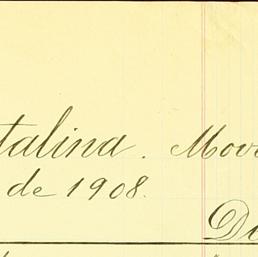 talina. Mov
de 1908.
D